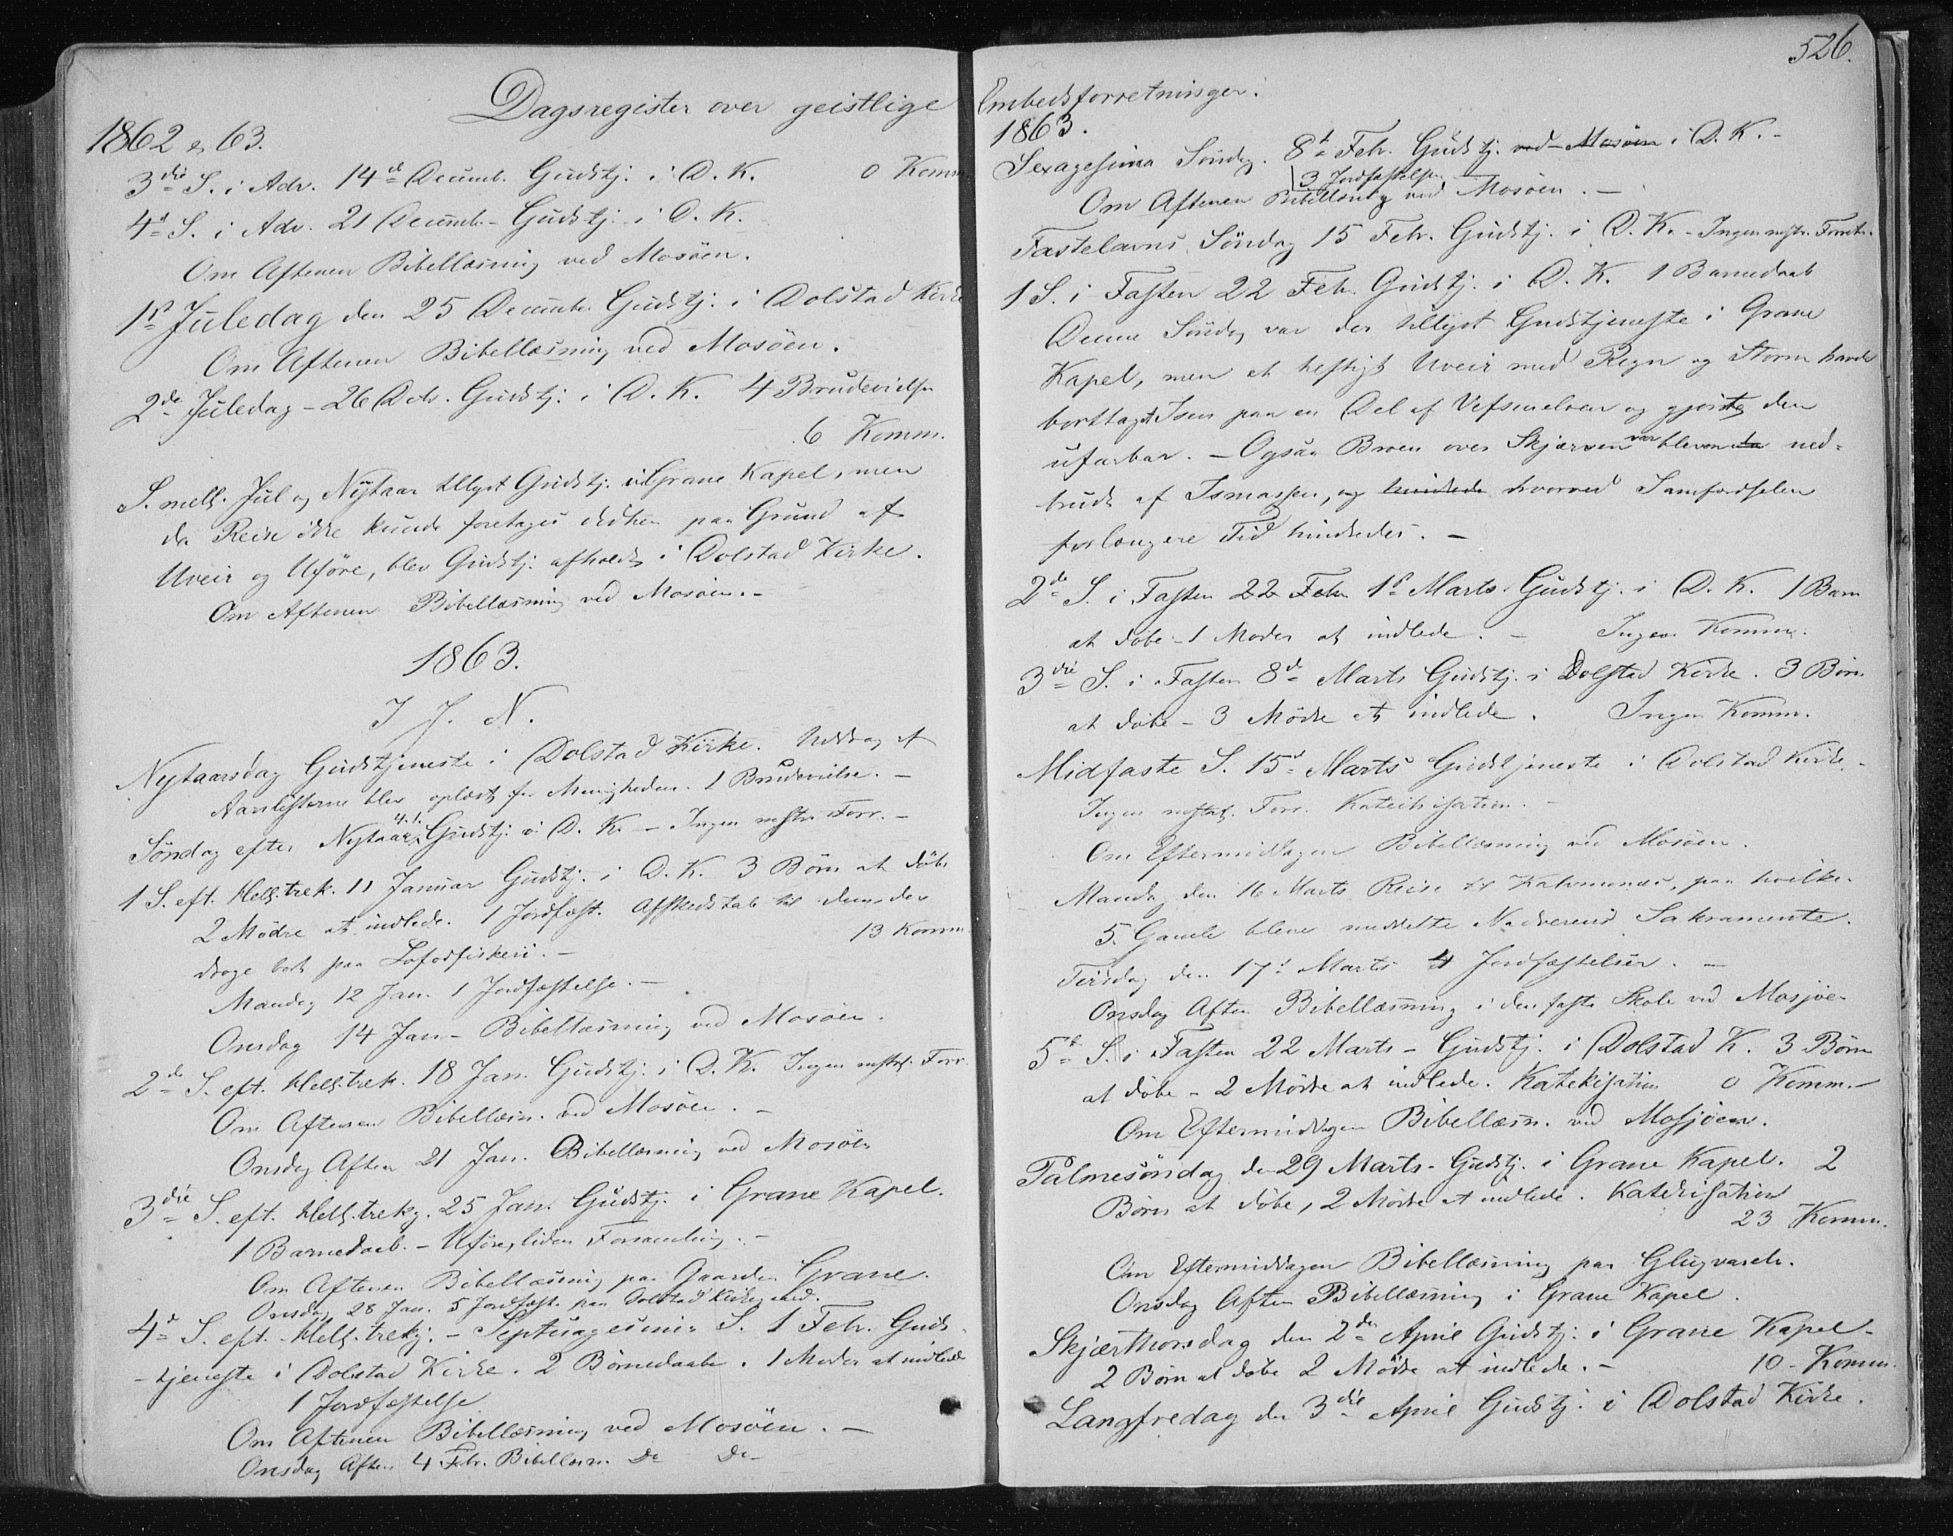 Dagsregister over geistlige
1862 & 63.
3die S. i Adv. 14de Decemb. Gudstj. i D. K. 0 Komm
4d S. i Adv. 21 Decemb. Gudstj. i D. K.
Om Aftenen Bibellæsning ved Mosøen.
1st Juledag den 25 Decemb. Gudstj. i Dolstad Kirke
Om Aftenen Bibellæsning ved Mosøen.
2de Juledag - 26 Dcb. Gudstj. i D. K. 4 Brudevielser
6 Komm.
S. mell. Jul og Nytaar tillyst Gudstj. i Grane Kapel, men
da Reise ikke kunde foretages didhen paa Grund af
Uveir og Uføre, blev Gudstj. afholdt i Dolstad Kirke.
Om Aftenen Bibellæsning ved Mosøen. -
1863.
I J. N.
Nytaarsdag Gudstjeneste i Dolstad Kirke. Uddrag af
Aarslisterne blev oplæst for Menigheden. 1 Brudevielse. -
Søndag efter Nytaar 4.1. Gudstj. i D. K. - Ingen Forr. -
1 S. eft. Hell. trek. 11 Januar Gudstj. i D. K. 3 Børn at døbe
2 Mødre at indlede. 1 Jordfæst. Afskedstale til dem der
13 Komm
droge bort paa Lofodfiskeri. -
Mandag 12 Jan. 1 Jordfæstelse. -
Onsdag 14 Jan - Bibellæsning ved Mosøen.
2de S. eft. Hell. trek. 18 Jan. Gudstj. i D. K. Ingen Forr.
Om Aftenen Bibellæsn. ved Mosøen. -
Onsdag Aften 21 Jan. Bibellæsning ved Mosøen
3die S. eft. Hell. trekg. 25 Jan. Gudstj. i Grane Kapel.
1 Barnedaab. - Uføre, liden Forsamling. -
Om Aftenen Bibellæsning paa Gaarden Grane.
Onsdag 28 Jan. 5 Jordfæst. paa Dolstad Kirkegaard.
4d S. eft. Hell. trekg. - Septuagesima S. 1 Febr. Guds
-tjeneste i Dolstad Kirke. 2 Børnedaab. 1 Moder at indlede
1 Jordfæstelse
Om Aftenen Bibellæsning ved Mosøen. -
Onsdag Aften 4 Febr. Bibellæsn. do do
526.
Embedsforretninger.
1863.
Sexagesima Søndag. 8d Febr. Gudstj. ved Mosøen i D. K. -
3 Jordfæstelser
Om Aftenen Bibellæsning ved Mosøen. -
Fastelavns Søndag 15 Febr. Gudstj. i D. K. - Ingen Forretn.
1 S. i Fasten 22 Feb. Gudstj. i D. K. 1 Barnedaab
Denne Søndag var der tillyst Gudstjeneste i Grane
Kapel, men et heftigt Uveir med Regn og Storm havde
borttaget Isen paa en Del af Vefsenelven og gjort den
ufarbar. - Ogsaa Broen over Skjærven var bleven ned-
brudt af Ismassen, og hindrede hvorved Samfærdselen
for længere Tid hindredes. -
2de S. i Fasten 22 Feb 1st Marts Gudstj. i D. K. 1 Barn
at døbe - 1 Moder at indlede. - Ingen Komm.
3die S. i Fasten 8de Marts Gudstj. i Dolstad Kirke. 3 Børn
at døbe - 3 Mødre at indlede. Ingen Komm.
Midfaste S. 15d Marts Gudstjeneste i Dolstad Kirke. -
Ingen Forr. Katechisation. -
Om Eftermiddagen Bibellæsning ved Mosøen.
Mandag den 16 Marts Reise til, paa hvilken
5 Gamle bleve meddelte Nadverens Sakramente.
Tirsdag den 17d Marts 4 Jordfæstelser. -
Onsdag Aften Bibellæsning i den faste Skole ved Mosjøen
5t S. i Fasten 22 Marts - Gudstj. i Dolstad K. 3 Børn
at døbe - 2 Mødre at indlede. Katekisation 0 Komm. -
Om Eftermiddagen Bibellæsn. ved Mosjøen.
Palmesøndag den 29 Marts - Gudstj. i Grane Kapel. 2
Børn at døbe, 2 Mødre at indlede. Katekisation
23 Komm.
Om Eftermiddagen Bibellæsning paa
Onsdag Aften Bibellæsning i Grane Kapel.
Skjærthorsdag den 2de April Gudstj. i Grane Kapel -
2 Børn at døbe 2 Mødre at indlede. - 10 - Komm.
Langfredag den 3die April Gudstj. i Dolstad Kirke.